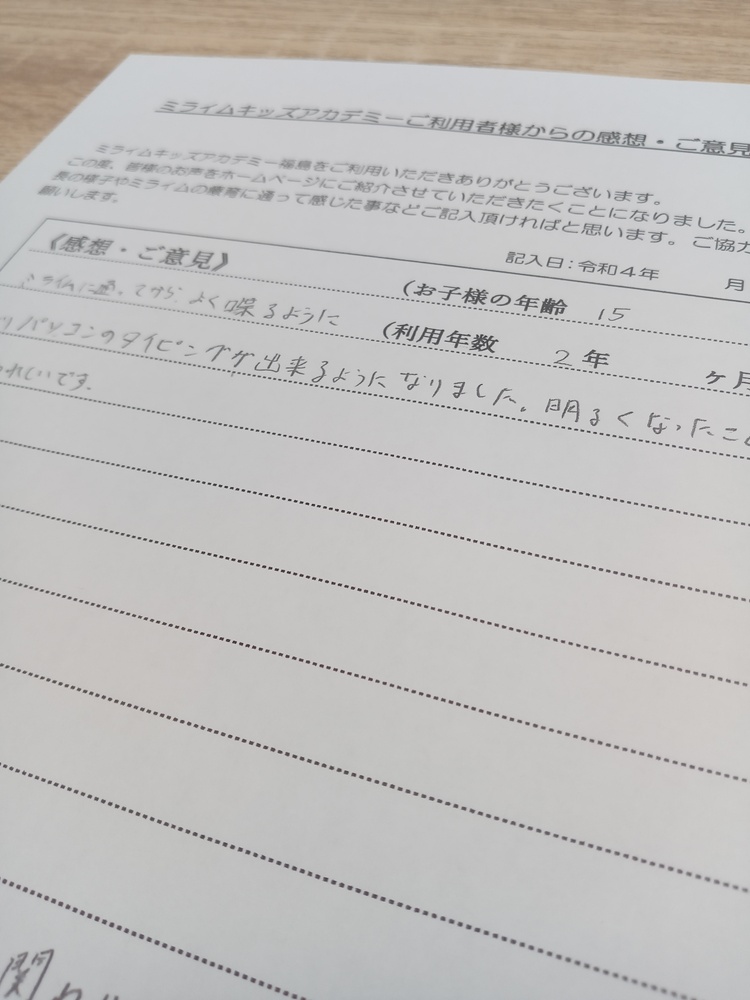 ミライムキッズアカデミーご利用者様からの感想・ご意見
ミライムキッズアカデミー福島をご利用いただきありがとうございます。
この度、皆様のお声をホームページにご紹介させていただきたくことになりました。
長の様子やミライムの療育に通って感じた事などご記入頂ければと思います。ご協力
願いします。
記入日：令和４年 月
《感想・ご意見》
(お子様の年齢 15
(利用年数 2 年 ヶ月
ミライムに通ってから よく喋るように
パソコンのタイピングが出来るようになりました。明るくなったこと
れしいです。
関